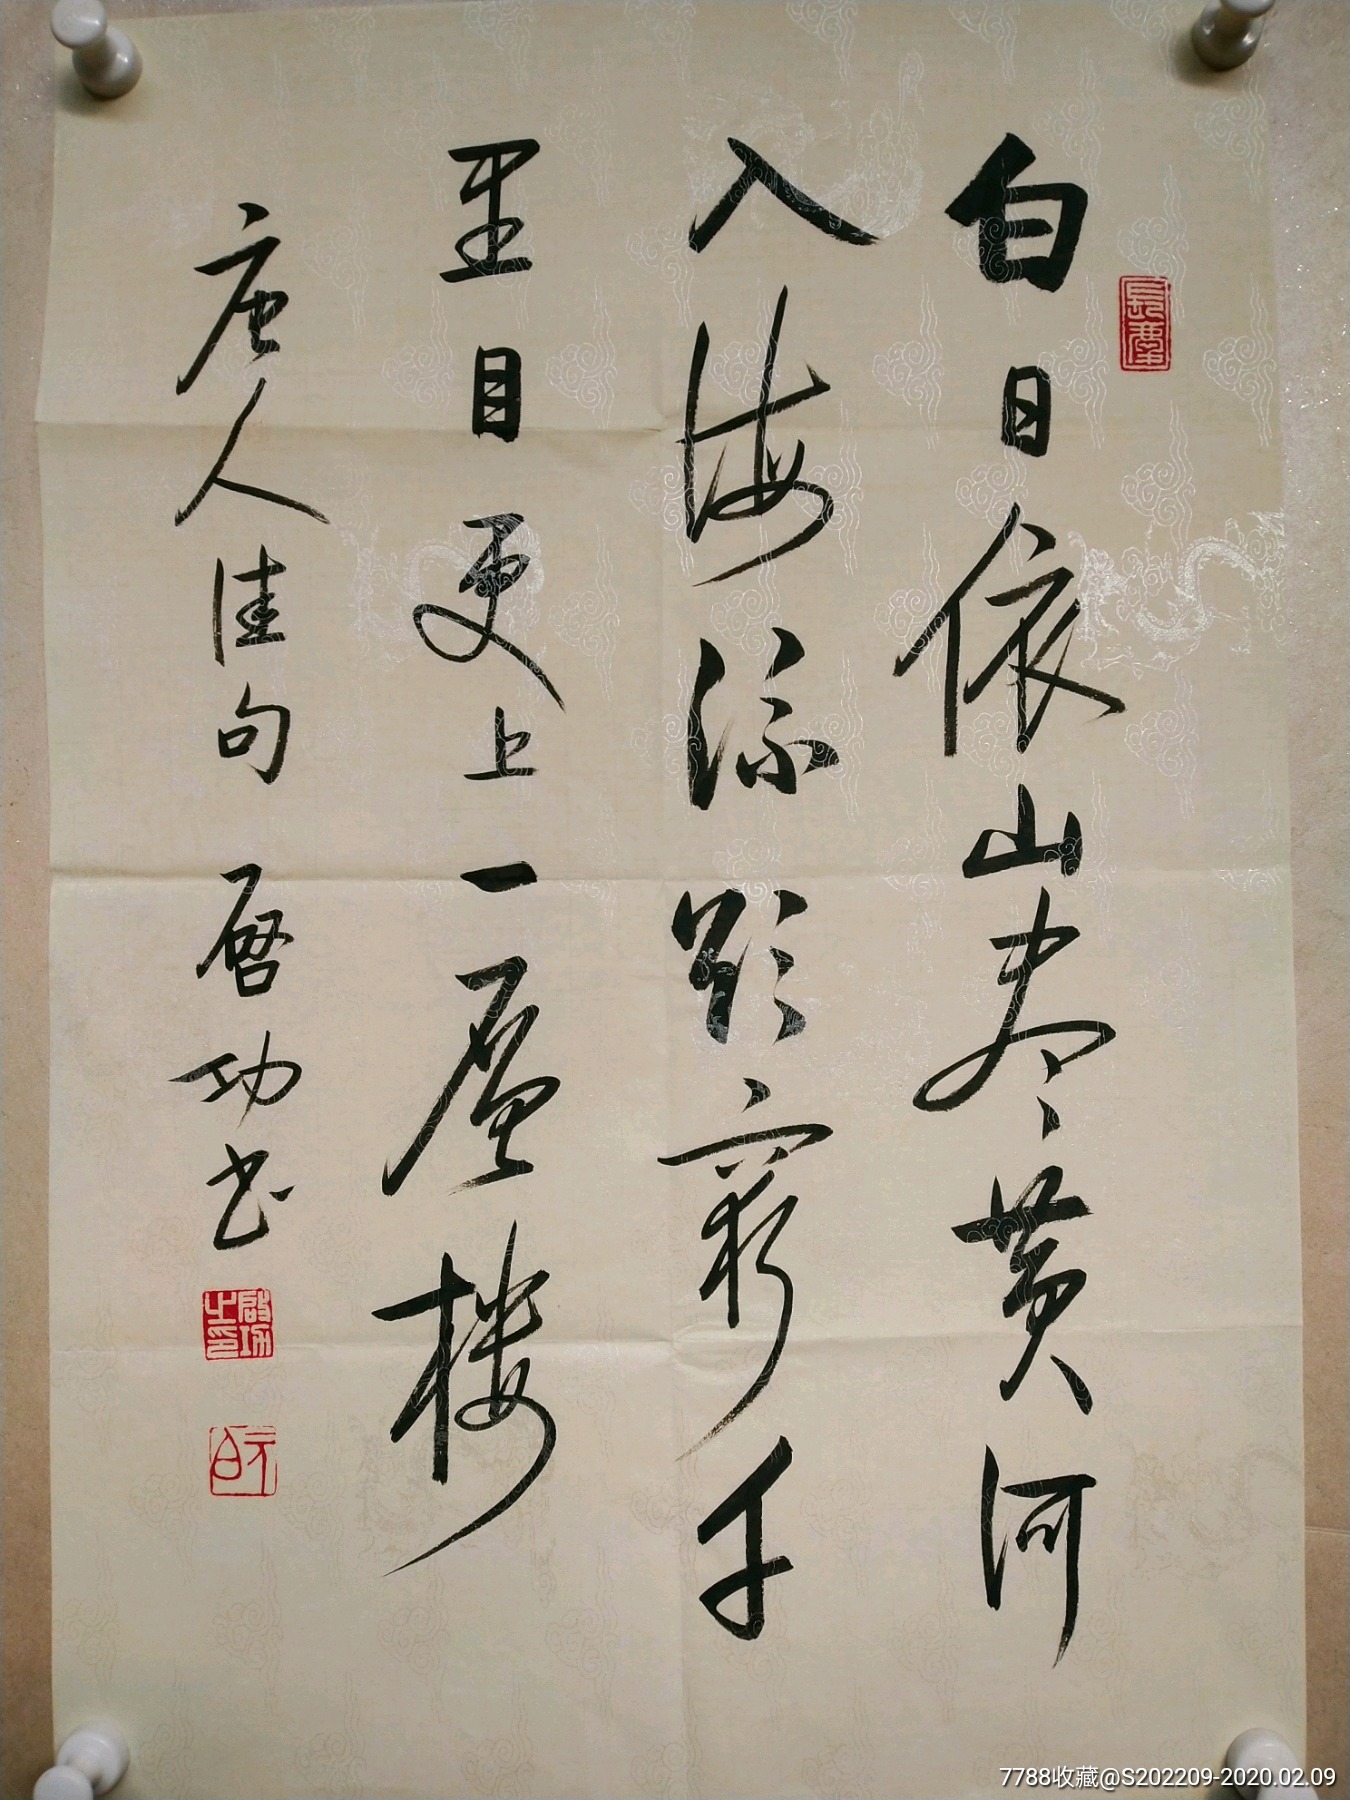 白日依山尽黄河
入海流欲窮千
里目更上一層楼
唐人佳句 啓功书
啟功之印
元白
7788收藏@S202209-2020.02.09